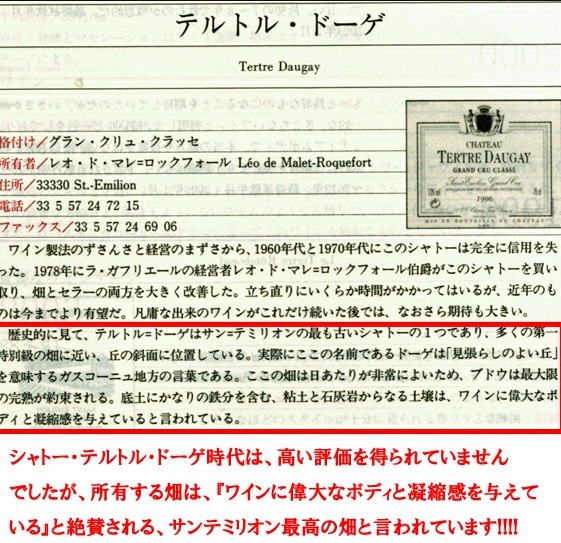 テルトル・ドーゲ
Tertre Daugay
格付け／グラン・クリュ・クラッセ
所有者／レオ・ド・マレ=ロックフォール Léo de Malet-Roquefort
住所／33330 St.-Emilion
電話／33 5 57 24 72 15
ファックス／33 5 57 24 69 06
CHATEAU
TERTRE DAUGAY
GRAND CRU CLASSÉ
Saint-Emilion Grand Cru
1996
MIS EN BOUTEILLE AU CHATEAU
ワイン製法のずさんさと経営のまずさから、1960年代と1970年代にこのシャトーは完全に信用を失
った。1978年にラ・ガフリエールの経営者レオ・ド・マレ=ロックフォール伯爵がこのシャトーを買い
取り、畑とセラーの両方を大きく改善した。立ち直りにいくらか時間がかかってはいるが、近年のも
のは今までより有望だ。凡庸な出来のワインがこれだけ続いた後では、なおさら期待も大きい。
歴史的に見て、テルトル=ドーゲはサン=テミリオンの最も古いシャトーの1つであり、多くの第一
特別級の畑に近い、丘の斜面に位置している。実際にここの名前であるドーゲは「見張らしのよい丘」
を意味するガスコーニュ地方の言葉である。ここの畑は日あたりが非常によいため、ブドウは最大限
の完熟が約束される。底土にかなりの鉄分を含む、粘土と石灰岩からなる土壌は、ワインに偉大なボ
ディと凝縮感を与えていると言われている。
シャトー・テルトル・ドーゲ時代は、高い評価を得られていません
でしたが、所有する畑は、『ワインに偉大なボディと凝縮感を与えて
いる』と絶賛される、サンテミリオン最高の畑と言われています!!!!